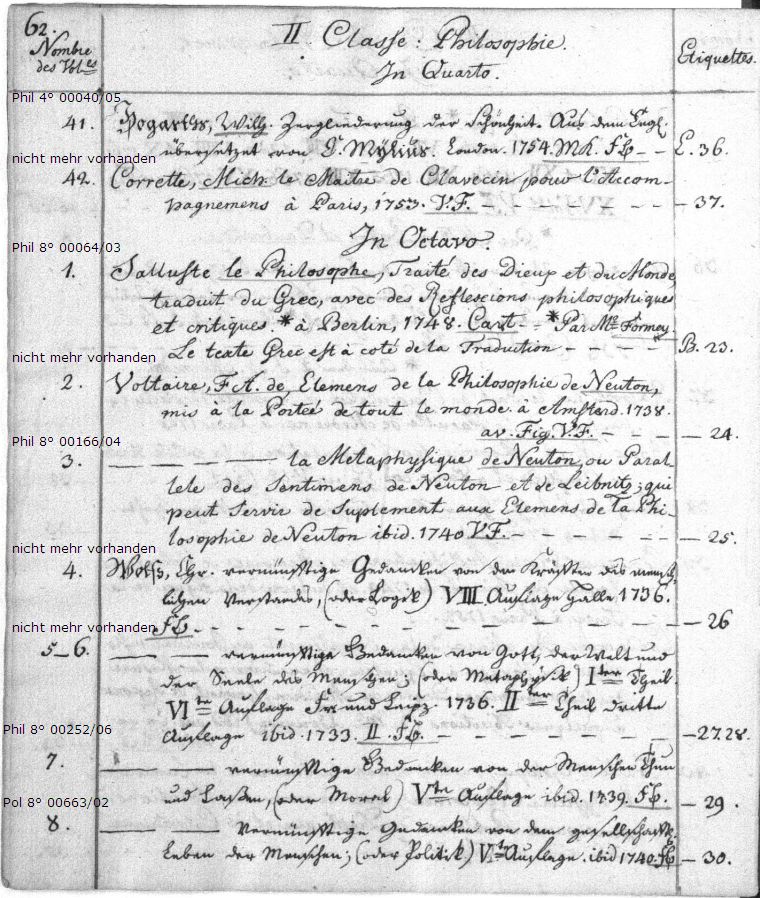 62.
II. Classe: Philosophie.
Nombre
des Vol:es
In Quarto.
Etiquettes.
Phil 4° 00040/05
41. Hogarths, Wilh. Zergliederung der Schönheit. Aus dem Engl.
übersetzet von C. Mylius. London. 1754. Mk. Fb. – – E. 36.
nicht mehr vorhanden
42. Corrette, Mich. le Maitre de Clavecin pour l'Accom-
pagnemens à Paris, 1753. V.F. – – – – – – 37.
Phil 8° 00064/03
In Octavo.
1. Salluste le Philosophe, Traité des Dieux et du Monde,
traduit du Grec, avec des Reflexcions philosophiques
et critiques. * à Berlin, 1748. Cart. – – * Par Mr. Formey.
Le texte Grec est à coté de la Traduction – – – – B. 23.
nicht mehr vorhanden
2. Voltaire, F. A. de, Elemens de la Philosophie de Neuton,
mis à la Porteé de tout le monde. à Amsterd. 1738.
av. Fig. V.F. – – – – 24.
Phil 8° 00166/04
3. — — — — la Metaphysique de Neuton, ou Paral-
lele des Sentimens de Neuton et de Leibnitz; qui
peut servir de Suplement aux Elemens de la Phi-
losophie de Neuton ibid. 1740 V.F. – – – – – – 25.
nicht mehr vorhanden
4. Wolfs, Chr. vernünfftige Gedancken von den Kräfften des mensch-
lichen Verstandes, (oder Logik) VIII. Auflage Halle 1736.
nicht mehr vorhanden
Fb. – – – – – – – – – – 26
5–6. — — vernünftige Gedancken von Gott, der Welt und
der Seele des Menschen; (oder Metaphysik) Iter Theil.
VIte Auflage Fr. und Leipz. 1736. IIter Theil dritte
Auflage ibid. 1733. II. Fb. – – – – – – – 27.28.
Phil 8° 00252/06
7. — — vernünfftige Gedancken von der Menschen Thun
und Laßen, (oder Moral) Vte Auflage ibid. 1739. Fb. – 29.
Pol 8° 00663/02
8. — — Vernünfftige Gedancken von dem gesellschaftl.
Leben der Menschen; (oder Politik) V.te Auflage. ibid 1740. Fb – 30.